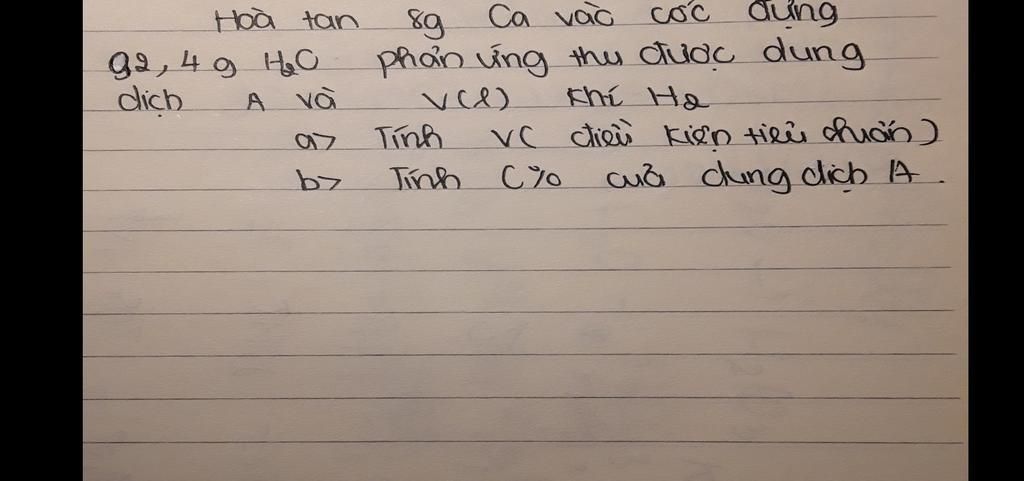 Hoà tan 8g Ca vào cốc đựng
92,4g H₂O phản ứng thu được dung
dịch A và V(l) khí H₂
a> Tính V( điều kiện tiêu chuẩn)
b> Tính C% của dung dịch A.